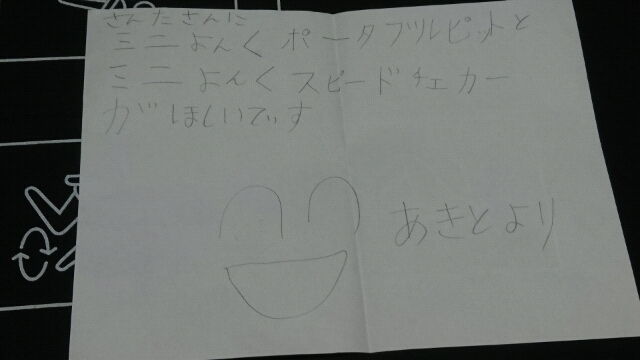 さんたさんに
ミニよんく ポータブルピットと
ミニよんくスピードチェカー
がほしいです
あきとより